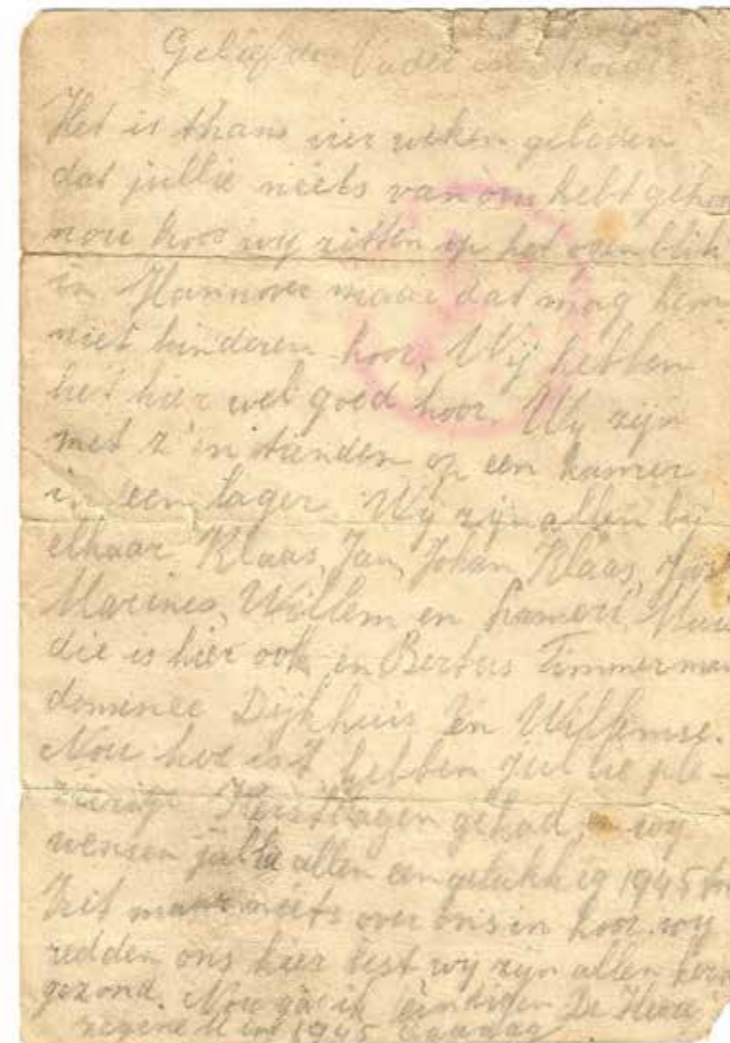 Geliefde Vader en Moeder
Het is thans vier weken geleden
dat jullie niets van ons hebt gehoo
nou hoor wy zitten op het ogenblik
in Hannover maar dat mag hem
niet hinderen hoor, Wij hebben
het hier wel goed hoor. Wy zijn
met z'en tienden op een kamer
in een lager. Wy zyn allen by
elkaar Klaas, Jan, Johan, Klaas, Joost
Marines, Willem en
die is hier ook en Bertus Timmerman
dominee Dijkhuis en Willemse.
Nou hoe ist hebben jullie ple-
zierige Kerstdagen gehad, wy
wensen jullie allen een gelukkig 1945 toe
Zit maar niets over ons in hoor wy
redden ons hier best wy zyn allen kern
gezond. Nou ga ik eindigen De Heere
zegene U in 1945